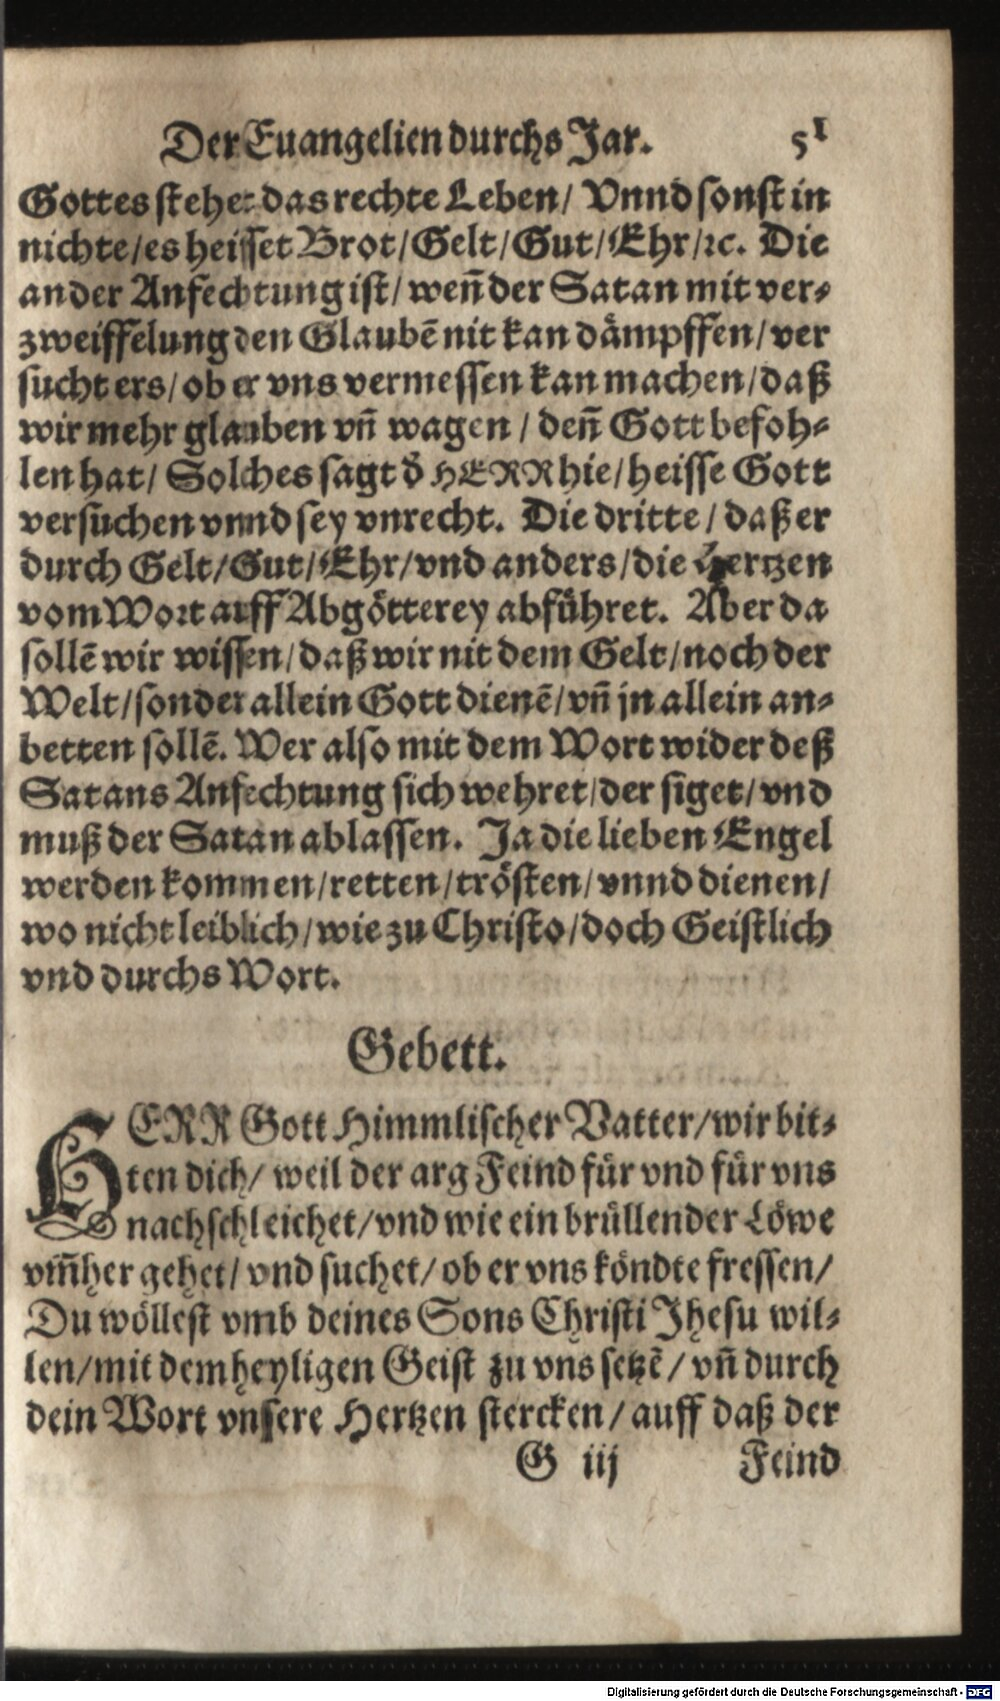 Der Euangelien durchs Jar. 51
Gottes stehet das rechte Leben/ Vnnd sonst in
nichte/es heisset Brot/Gelt/Gut/Ehr/ꝛc. Die
ander Anfechtung ist/ weñ der Satan mit ver⸗
zweiffelung den Glaubẽ nit kan dämpffen/ver
sucht ers/ob er vns vermessen kan machen/daß
wir mehr glauben vñ wagen / deñ Gott befoh⸗
len hat/ Solches sagt d̕ HERR hie/heisse Gott
versuchen vnnd sey vnrecht. Die dritte / daß er
durch Gelt/Gut/Ehr/vnd anders/die Hertzen
vom Wort auff Abgötterey abführet. Aber da
sollẽ wir wissen/daß wir nit dem Gelt/noch der
Welt/sonder allein Gott dienẽ/vñ jn allein an⸗
betten sollẽ. Wer also mit dem Wort wider deß
Satans Anfechtung sich wehret/der siget/vnd
muß der Satan ablassen. Ja die lieben Engel
werden kommen/retten/trösten/vnnd dienen/
wo nicht leiblich/wie zu Christo/doch Geistlich
vnd durchs Wort.
Gebett.
HERR Gott Himmlischer Vatter/wir bit⸗
ten dich/ weil der arg Feind für vnd für vns
nachschleichet/vnd wie ein brüllender Löwe
vm̃her gehet/ vnd suchet/ob er vns köndte fressen/
Du wöllest vmb deines Sons Christi Jhesu wil⸗
len/mit dem heyligen Geist zu vns setzẽ/ vñ durch
dein Wort vnsere Hertzen stercken/auff daß der
G iij Feind
Digitalisierung gefördert durch die Deutsche Forschungsgemeinschaft - DFG